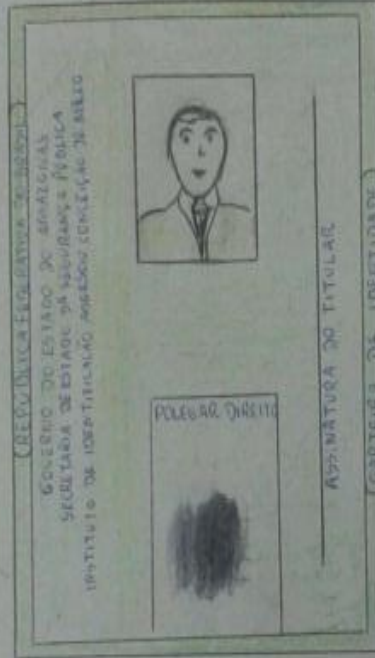 (REPÚBLICA FEDERATIVA DO BRASIL)
GOVERNO DO ESTADO DO AMAZONAS
SECRETARIA DE ESTADO DA SEGURANÇA PÚBLICA
INSTITUTO DE IDENTIFICAÇÃO ANDERSON CONCEIÇÃO DE MELO
POLEGAR DIREITO
ASSINATURA DO TITULAR
(CARTEIRA DE IDENTIDADE)